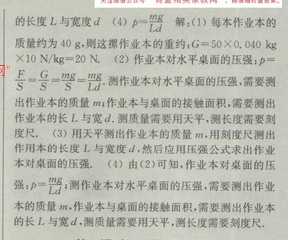 的长度 L 与宽度 d (4) p=mg/Ld 解:(1)每本作业本的
质量约为 40 g,则这摞作业本的重约:G=50×0.040 kg
×10 N/kg=20 N. (2)作业本对水平桌面的压强:p=
F/S=G/S=mg/S=mg/Ld.测作业本对水平桌面的压强,需要测
出作业本的质量 m;作业本与桌面的接触面积,需要测
出作业本的长 L 与宽 d.测质量需要用天平,测长度需要刻
度尺. (3)用天平测出作业本的质量 m,用刻度尺测出
作用本的长度 L 与宽度 d,然后应用压强公式求出作业
本对桌面的压强. (4)由(2)可知,作业本对桌面的压
强:p=mg/Ld;测作业本对水平桌面的压强,需要测出作业
本的质量 m,作业本与桌面的接触面积,需要测出作业本
的长 L 与宽 d,测质量需要用天平,测长度需要刻度尺.